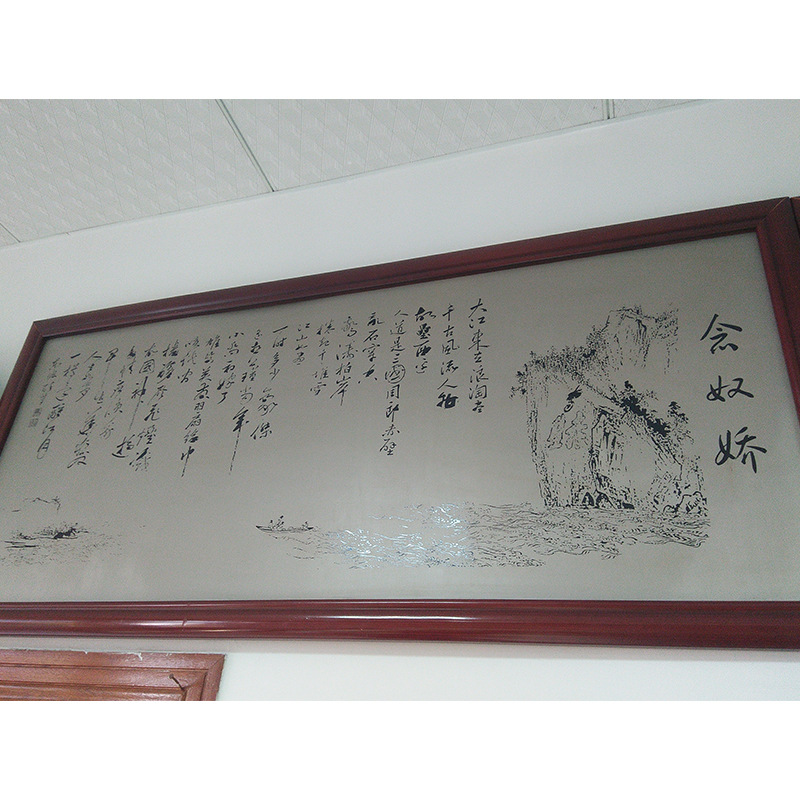 念奴娇
大江東去浪淘尽
千古風流人物
故壘西边
人道是三國周郎赤壁
乱石穿空
惊涛拍岸
捲起千堆雪
江山如画
一时多少豪傑
遥想公瑾当年
小乔初嫁了
雄姿英发羽扇纶巾
谈笑间
樯櫓灰飛煙滅
故國神游
多情应笑我
早生华发
人生如梦
一樽还酹江月